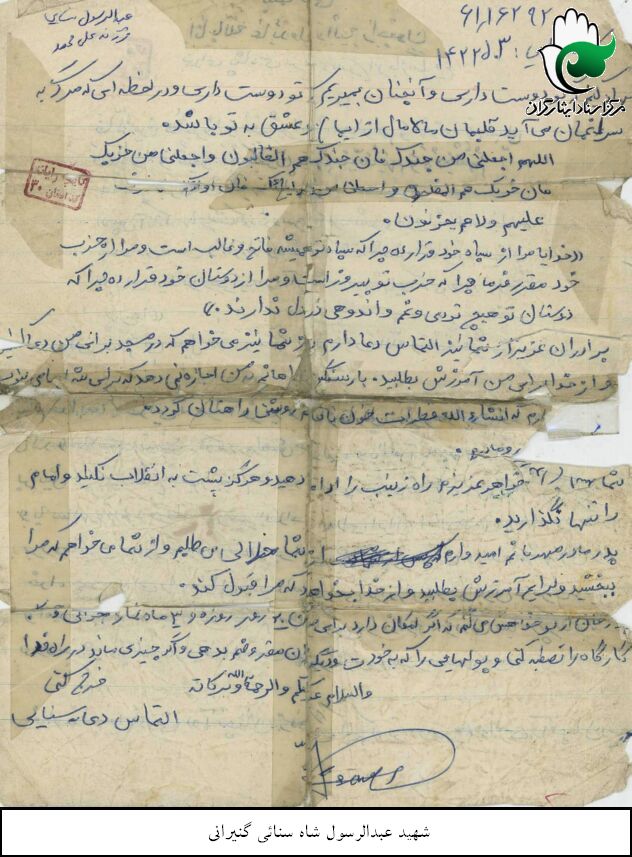 عبدالرسول سنایی
فرزند علی محمد
۶۱٫۱۶۲۹۲
۱۴۲۲۵۰۳
مرکز اسناد ایثارگران
دوست داری و آنچنان بمیریم که تو دوست داری و در لحظه ای که مرگ به
می آید قلبمان مالامال از ایمان و عشق به تو باشد.
اللهم اجعلنی من جندک فان جندک هم الغالبون واجعلنی من حزبک
فان حزبک هم المفلحون واجعلنی من اولیائک فان اولیائک
علیهم ولاهم یحزنون.
«خدایا مرا از سپاه خود قرار ده چرا که سپاه تو همیشه فاتح و غالب است و مرا از حزب
خود مقرر فرما چرا که حزب تو پیروز است و مرا از دوستان خود قرار ده چرا که
دوستان تو هیچ ترس و غم و اندوهی در دل ندارند.»
برادران عزیز از شما نیز التماس دعا دارم و از شما نیز می خواهم که در مسجد برای من دعا کنید
و از خدا برای من آمرزش بطلبید. به من اجازه نمی دهد که برای شما
انشاء الله قطرات خون راهتان گردد.
شما خواهر عزیزم راه زینب را ادامه دهید و هرگز پشت به انقلاب نکنید و امام
را تنها نگذارید.
پدر و مادر مهربانم امیدوارم از شما حلالی می طلبم و از شما می خواهم که مرا
ببخشید و برایم آمرزش بطلبید و از خدا بخواهید که مرا قبول کند.
از تو خواهش می کنم که اگر امکان دارد برای من روز روزه و ۳ ماه نماز
کارگاه را تصفیه کنی و پولهایی را که به خودت و دیگران مقروضم بدهی و اگر چیزی ماند در راه خدا
خرج کنی
والسلام علیکم والرحمة الله وبرکاته
التماس دعا سنایی
شهید عبدالرسول شاه سنائی گنیرانی